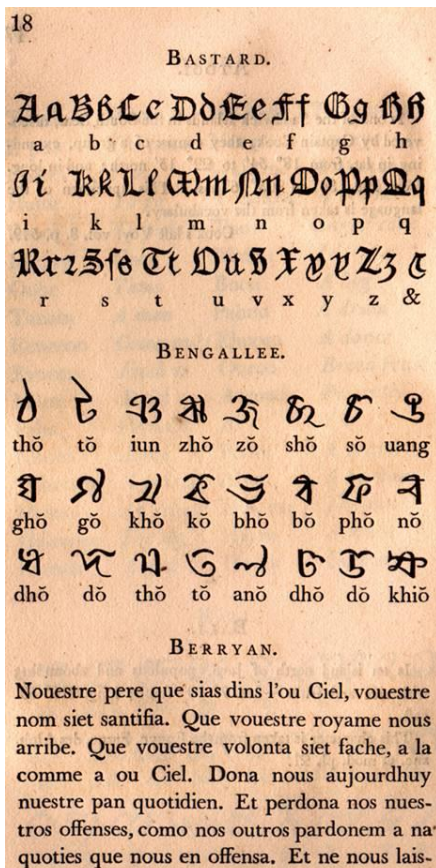 18
BASTARD.
Aa Bb Cc Dd Ee Ff Gg Hh
a b c d e f g h
Ii Kk Ll Mm Nn Oo Pp Qq
i k l m n o p q
Rrꝛ Sſs Tt Uu v X x y Zz &
r s t u v x y z &
BENGALLEE.
ঠ ট ঞ ঝ জ ছ চ ঙ
thŏ tŏ iun zhŏ zŏ shŏ sŏ uang
ঘ গ খ ক ভ ব ফ ন
ghŏ gŏ khŏ kŏ bhŏ bŏ phŏ nŏ
ধ দ থ ত ণ ঢ ড ক্ষ
dhŏ dŏ thŏ tŏ anŏ dhŏ dŏ khiŏ
BERRYAN.
Nouestre pere que sias dins l'ou Ciel, vouestre
nom siet santifia. Que vouestre royame nous
arribe. Que vouestre volonta siet fache, a la
comme a ou Ciel. Dona nous aujourdhuy
nuestre pan quotidien. Et perdona nos nues-
tros offenses, como nos outros pardonem a na
quoties que nous en offensa. Et ne nous lais-